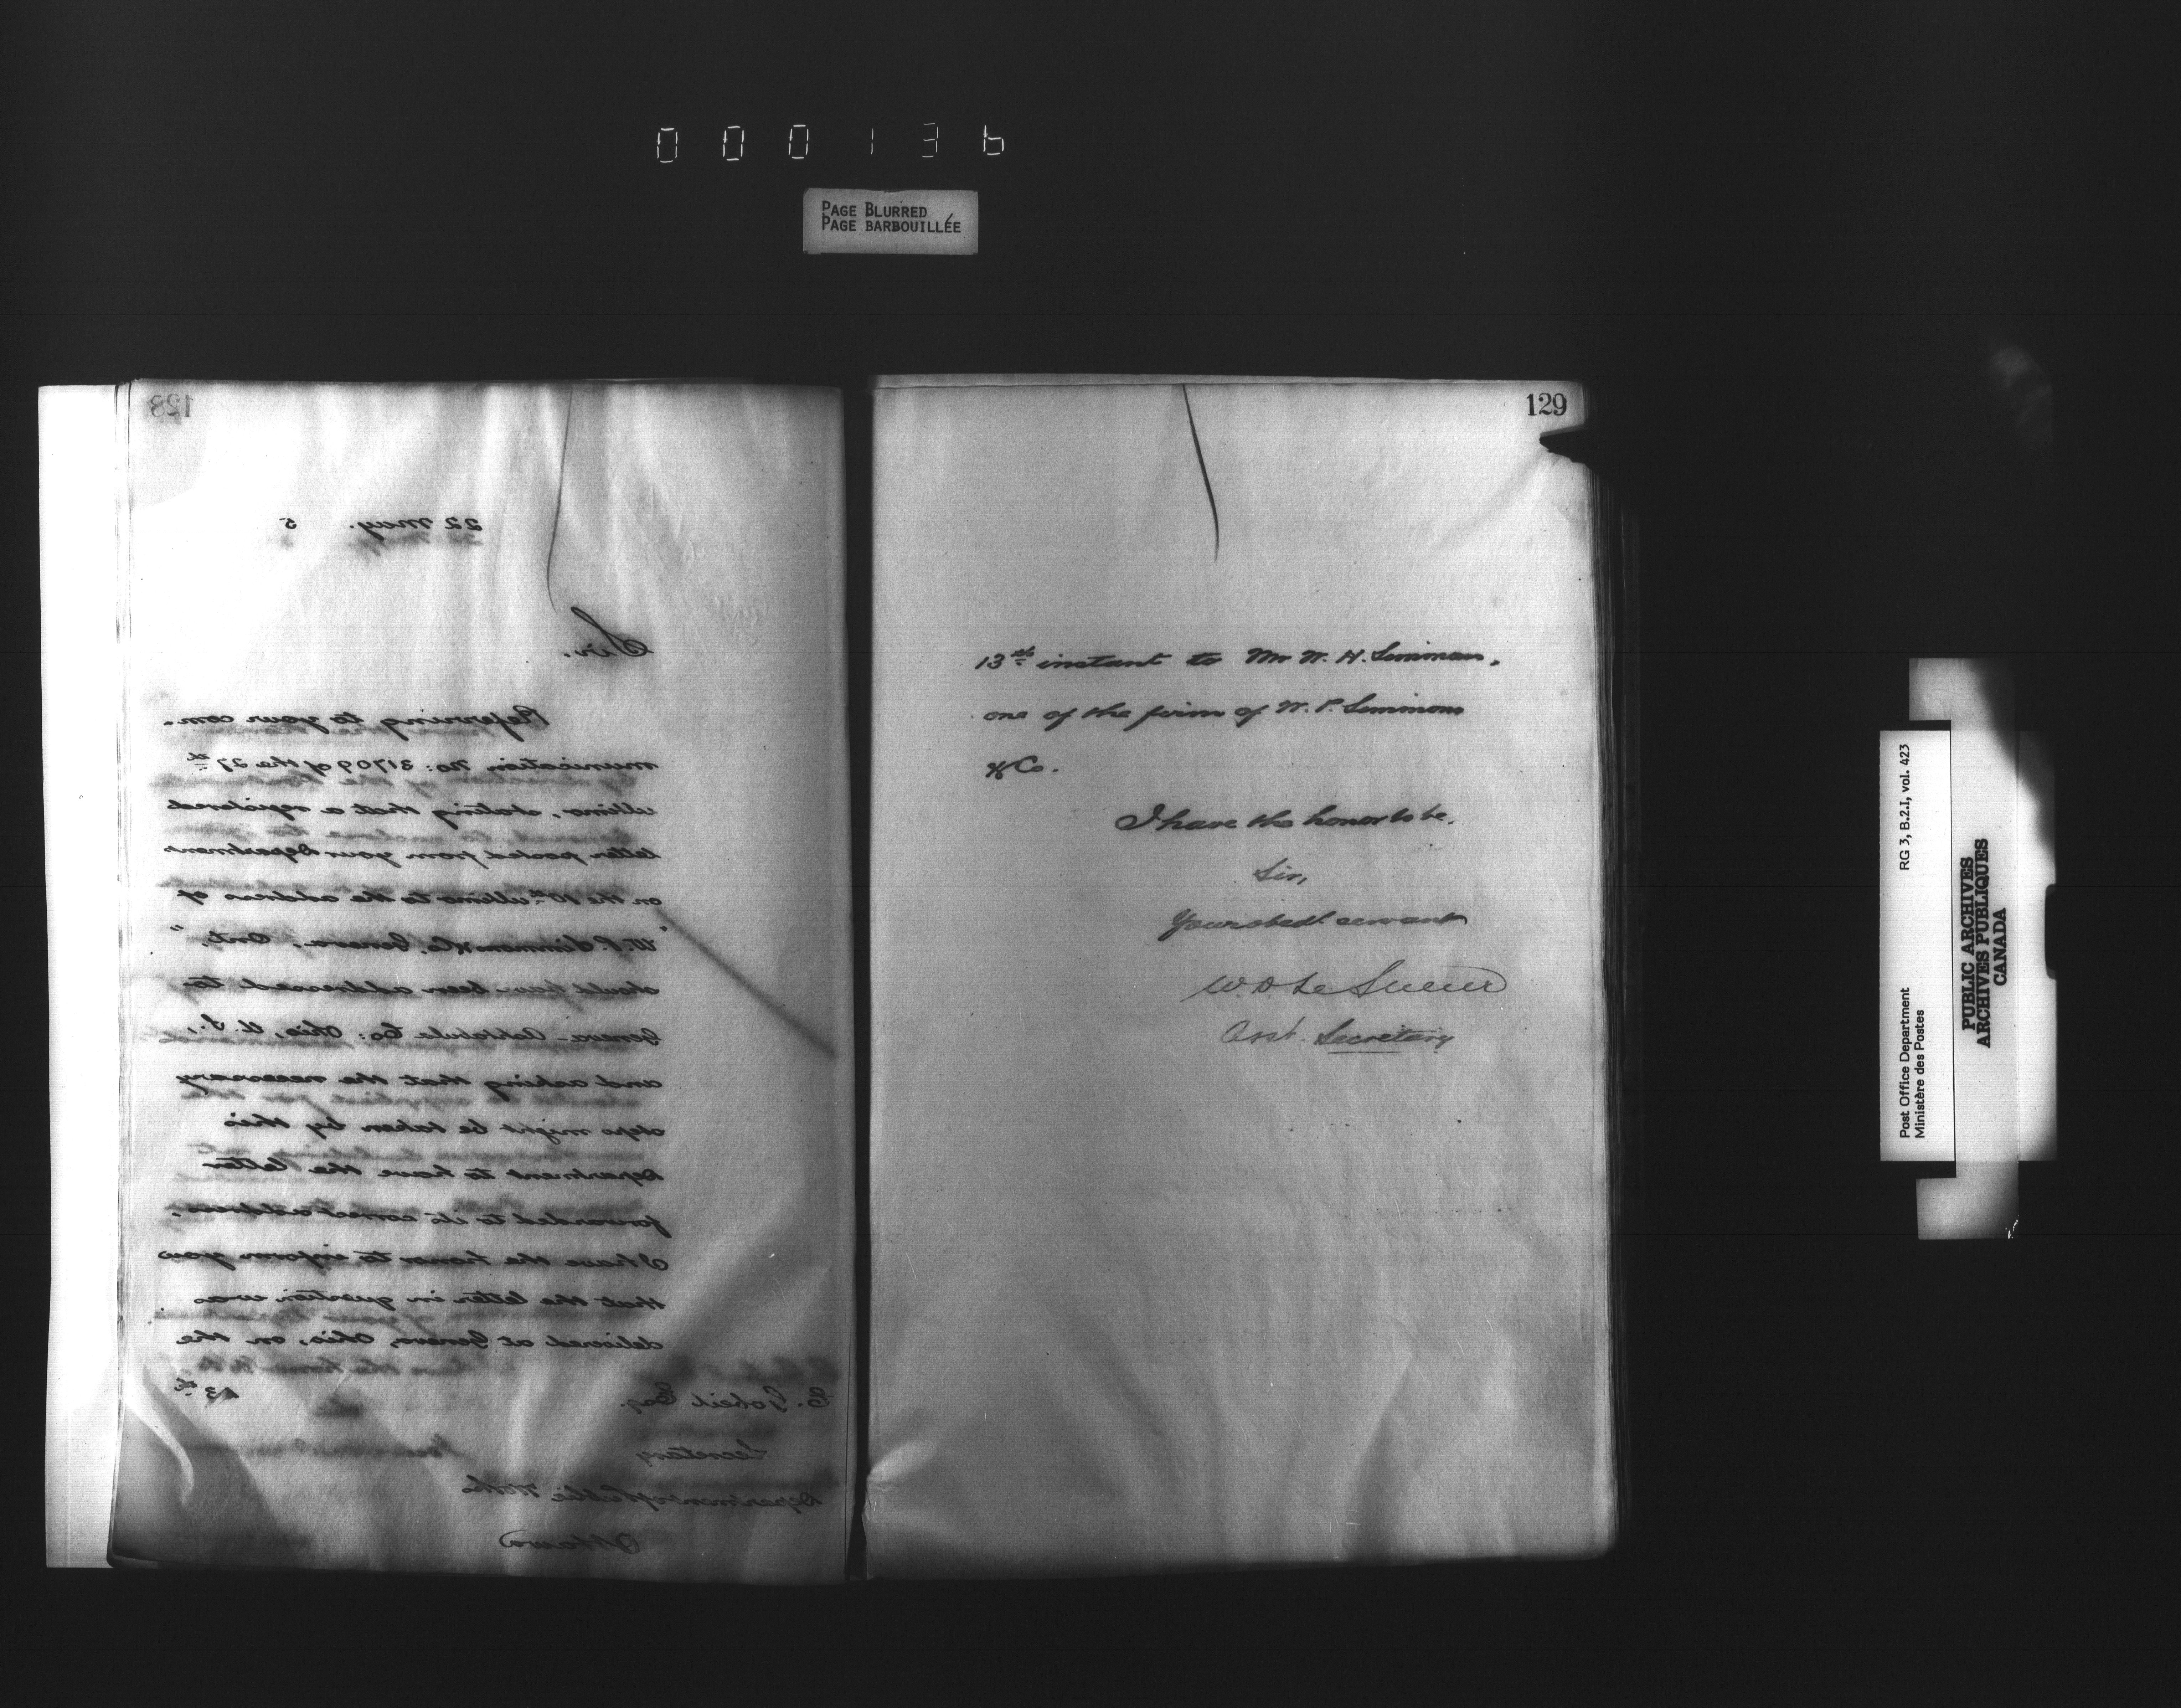 000136
PAGE BLURRED
PAGE BARBOUILLÉE
128
22 May. 5
Sir,
Referring to your com-
munication No: 31709 of the 27th
ultimo, stating that a registered
letter posted from your Department
on the 10th ultimo to the address of
"W. P. Simmons & Co. Geneva, Ont."
should have been addressed to
Geneva - Ashtabula Co: Ohio, U.S.,
and asking that the necessary
steps might be taken by this
Department to have the letter
forwarded to its correct address.
I have the honor to inform you
that the letter in question was
delivered at Geneva, Ohio, on the
13th
E. Gobeil Esq.
Secretary
Department of Public Works
Ottawa
129
13th instant to Mr W. H. Simmons,
one of the firm of W. P. Simmons
& Co.
I have the honor to be,
Sir,
Your obedt servant
W. D. Le Sueur
Asst. Secretary
Post Office Department RG 3, B.2.I, vol. 423
Ministère des Postes
PUBLIC ARCHIVES
ARCHIVES PUBLIQUES
CANADA